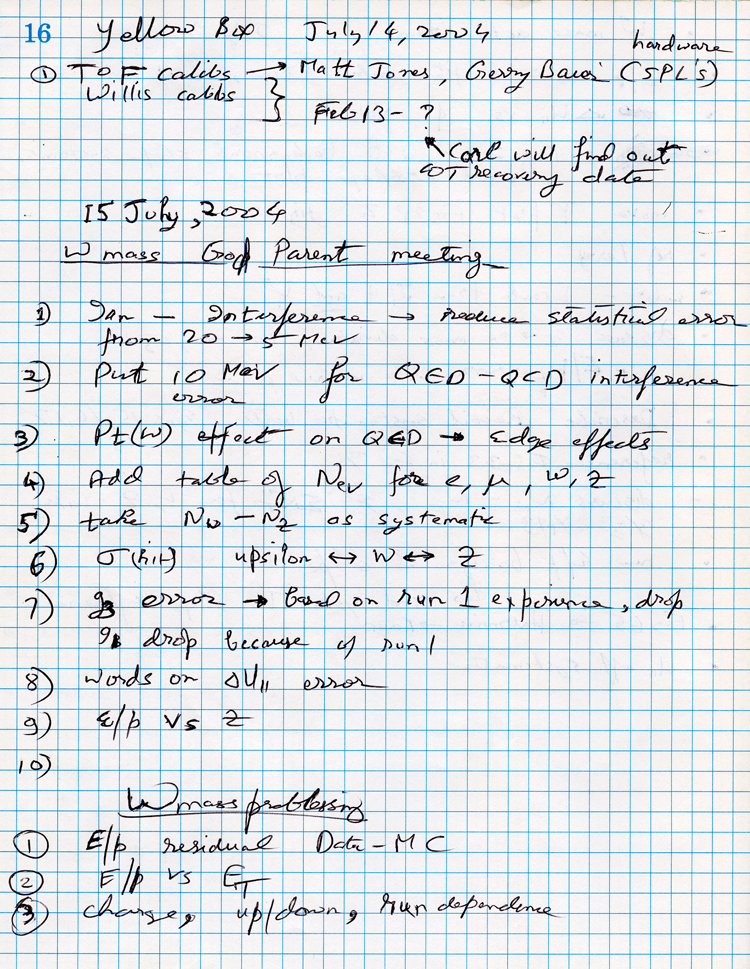 16 Yellow Box July 14, 2004
hardware
① TOF calibs → Matt Jones, Gerry Bauer (SPL's)
Willis calibs
Feb 13 - ?
Carl will find out
COT recovery date
15 July, 2004
W mass God Parent meeting
1) Ian — Interference → reduce statistical error
from 20 → 5 MeV
2) Put 10 MeV for QED-QCD interference
error
3) Pt(W) effect on QED → Edge effects
4) Add table of Nev for e, μ, W, Z
5) take NW - NZ as systematic
6) σ(hit) upsilon ↔ W ↔ Z
7) g3 error → based on run 1 experience, drop
drop because of run 1
8) words on ΔU|| error
9) E/p vs Z
10)
W mass problessing
① E/p residual Data - MC
② E/p vs ET
③ charge, up/down, run dependence